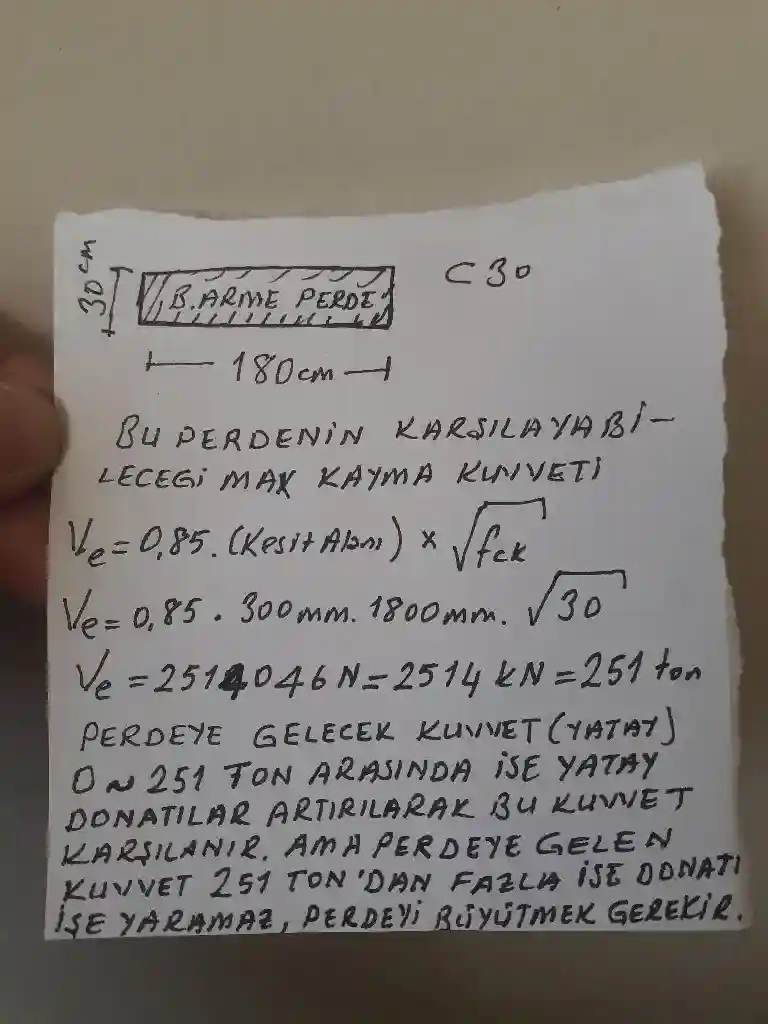 30 cm
B.ARME PERDE
C30
180cm
BU PERDENİN KARŞILAYABİ-
LECEGİ MAX KAYMA KUVVETİ
Ve = 0,85. (Kesit Alanı) x √fck
Ve = 0,85 . 300mm. 1800mm. √30
Ve = 2514046 N = 2514 kN = 251 ton
PERDEYE GELECEK KUVVET (YATAY)
0 ~ 251 TON ARASINDA İSE YATAY
DONATILAR ARTIRILARAK BU KUVVET
KARŞILANIR. AMA PERDEYE GELEN
KUVVET 251 TON'DAN FAZLA İSE DONATI
İŞE YARAMAZ, PERDEYİ BÜYÜTMEK GEREKİR.